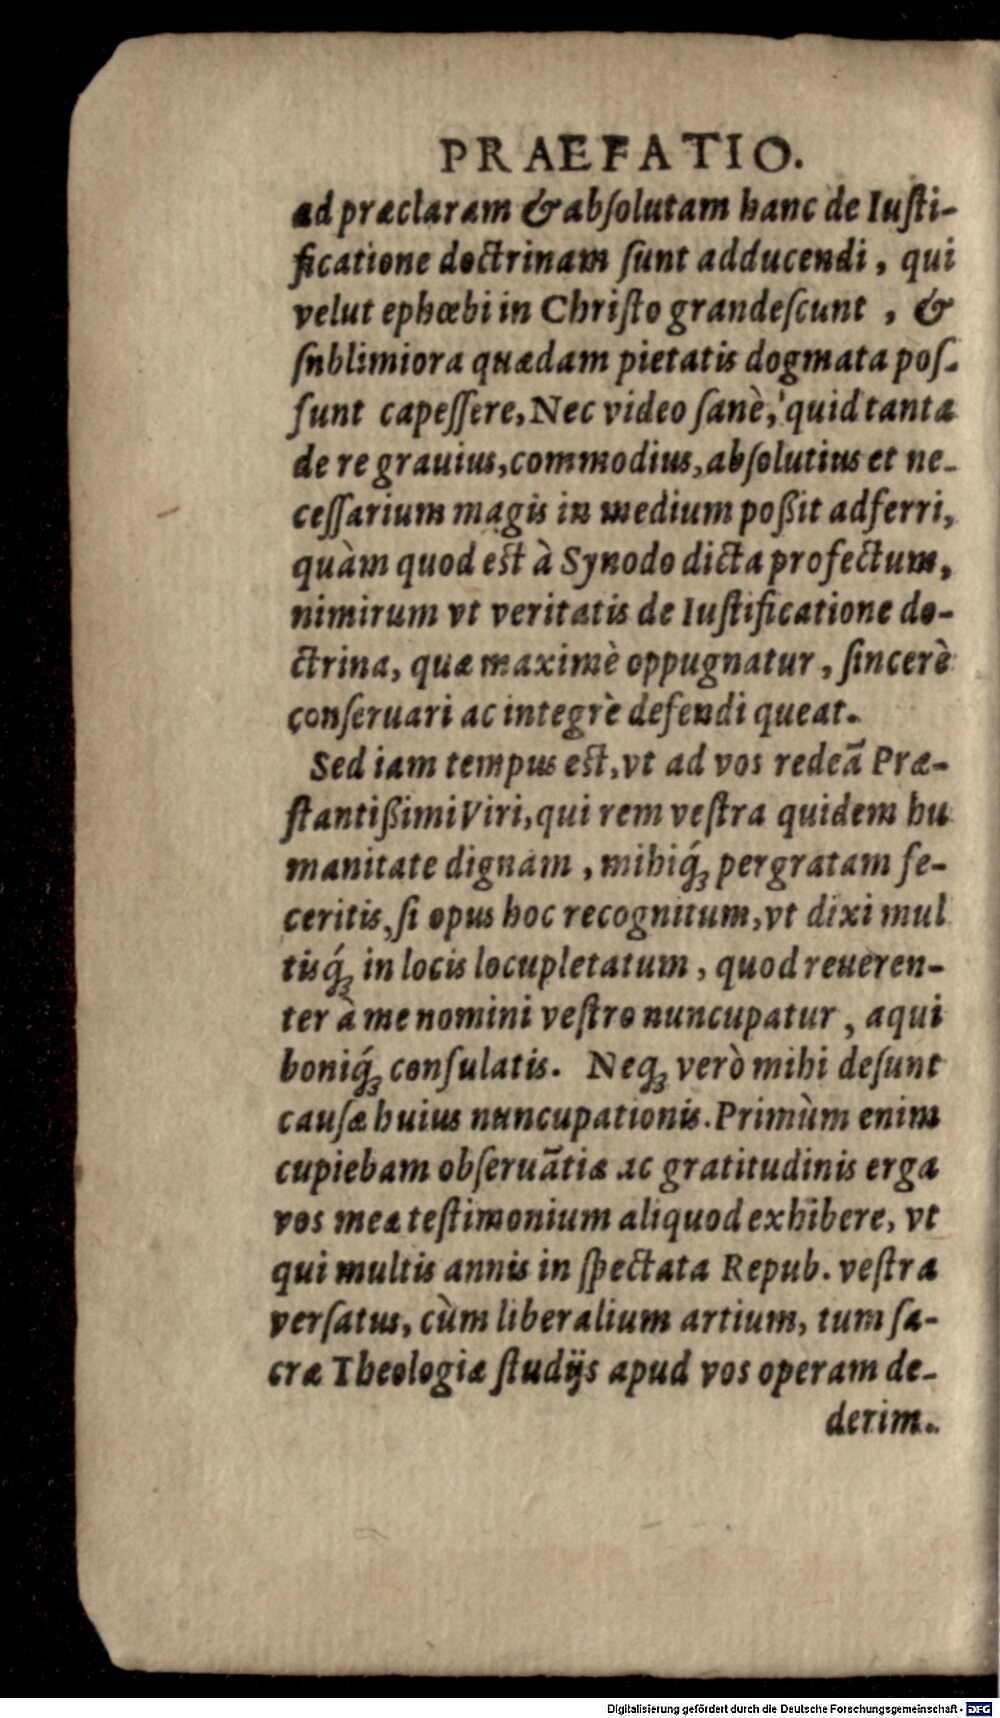 PRAEFATIO.
ad præclaram & absolutam hanc de Iusti-
ficatione doctrinam sunt adducendi, qui
velut ephœbi in Christo grandescunt, &
sublimiora quædam pietatis dogmata pos-
sunt capessere, Nec video sanè, quid tanta
de re grauius, commodius, absolutius et ne-
cessarium magis in medium poßit adferri,
quàm quod est à Synodo dicta profectum,
nimirum vt veritatis de Iustificatione do-
ctrina, quæ maximè oppugnatur, sincerè
conseruari ac integrè defendi queat.
Sed iam tempus est, vt ad vos redeã Præ-
stantißimi Viri, qui rem vestra quidem hu
manitate dignam, mihiq́ꝫ pergratam fe-
ceritis, si opus hoc recognitum, vt dixi mul
tisq́ꝫ in locis locupletatum, quod reueren-
ter à me nomini vestro nuncupatur, æqui
boniq́ꝫ consulatis. Neqꝫ verò mihi desunt
causæ huius nuncupationis. Primùm enim
cupiebam obseruãtiæ ac gratitudinis erga
vos meæ testimonium aliquod exhibere, vt
qui multis annis in spectata Repub. vestra
versatus, cùm liberalium artium, tum sa-
cræ Theologiæ studijs apud vos operam de-
derim.
Digitalisierung gefördert durch die Deutsche Forschungsgemeinschaft - DFG